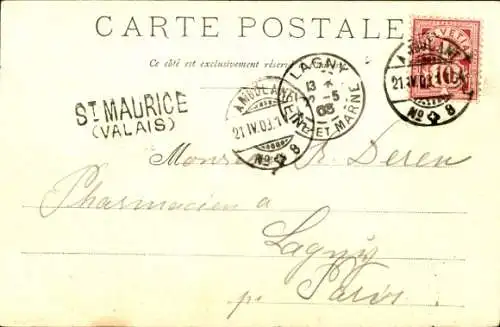 CARTE POSTALE
Ce côté est exclusivement réservé
HELVETIA
10
AMBULANT
21.IV.03
No 8
LAGNY
13
2-5
03
SEINE ET MARNE
AMBULANT
21.IV.03.
No 8
ST MAURICE
(VALAIS)
Monsieur R. Deren
Pharmacien à
Lagny
pr Paris.